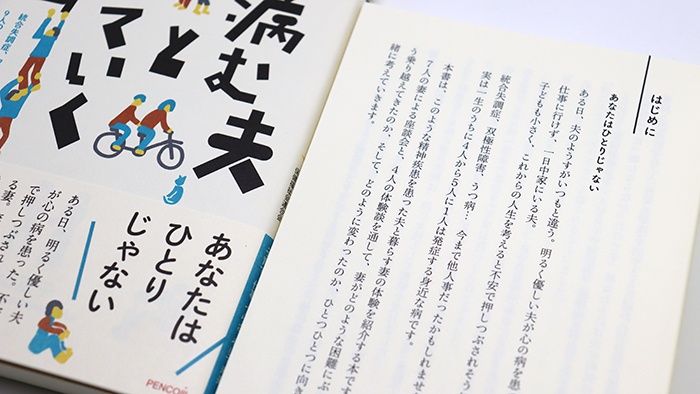 病む夫
と
ていく
統合失調症、
あなたは
ひとり
じゃない
ある日、明るく優しい夫
が心の病を患った。
で押しつぶされ
る妻。
PENCO
はじめに
あなたはひとりじゃない
ある日、夫のようすがいつもと違う。明るく優しい夫が心の病を患
仕事に行けず、一日中家にいる夫。
子どもも小さく、これからの人生を考えると不安で押しつぶされそう
統合失調症、双極性障害、うつ病…今まで他人事だったかもしれませ
実は一生のうちに4人から5人に1人は発症する身近な病です。
本書は、このような精神疾患を患った夫と暮らす妻の体験を紹介する本です
7人の妻による座談会と、4人の体験談を通して、妻がどのような困難にぶ
う乗り越えてきたのか、そして、どのように変わったのか、ひとつひとつに向き
緒に考えていきます。